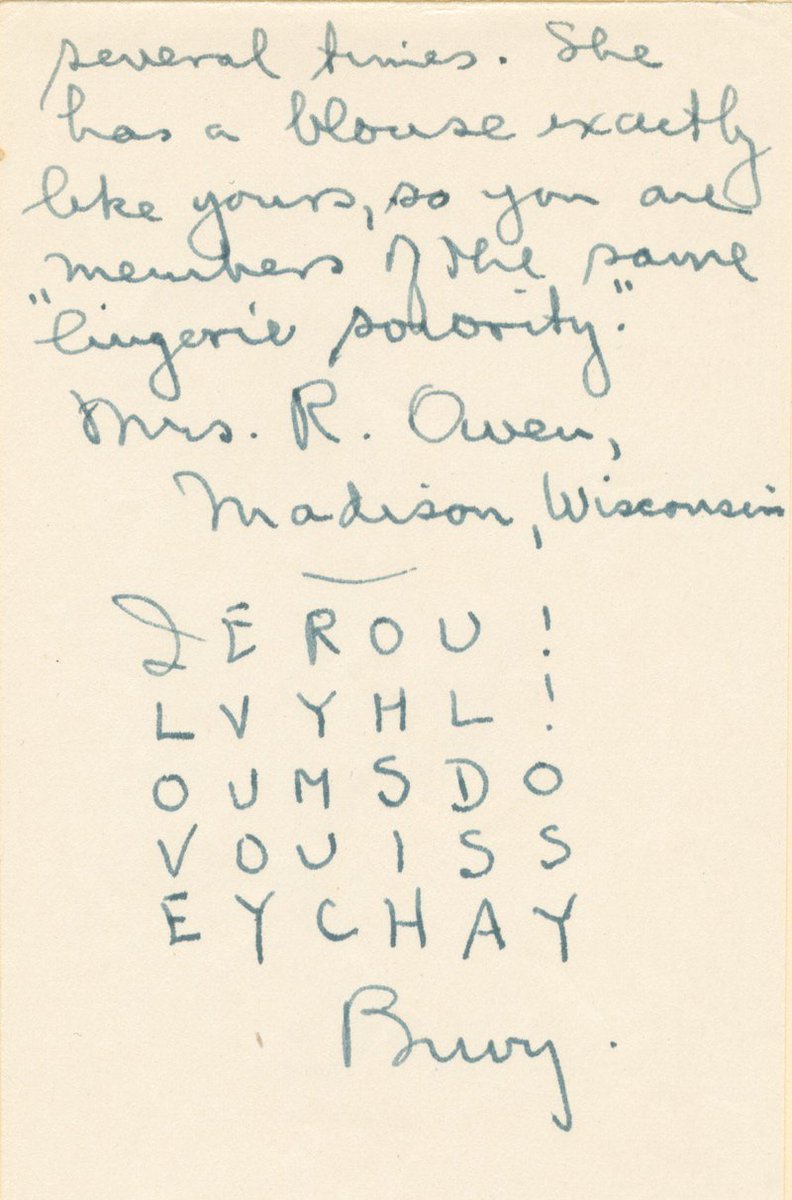 several times. She
has a blouse exactly
like yours, so you are
members of the same
"lingerie sorority."
Mrs. R. Owen,
Madison, Wisconsin
I E R O U !
L V Y H L !
O U M S D O
V O U I S S
E Y C H A Y